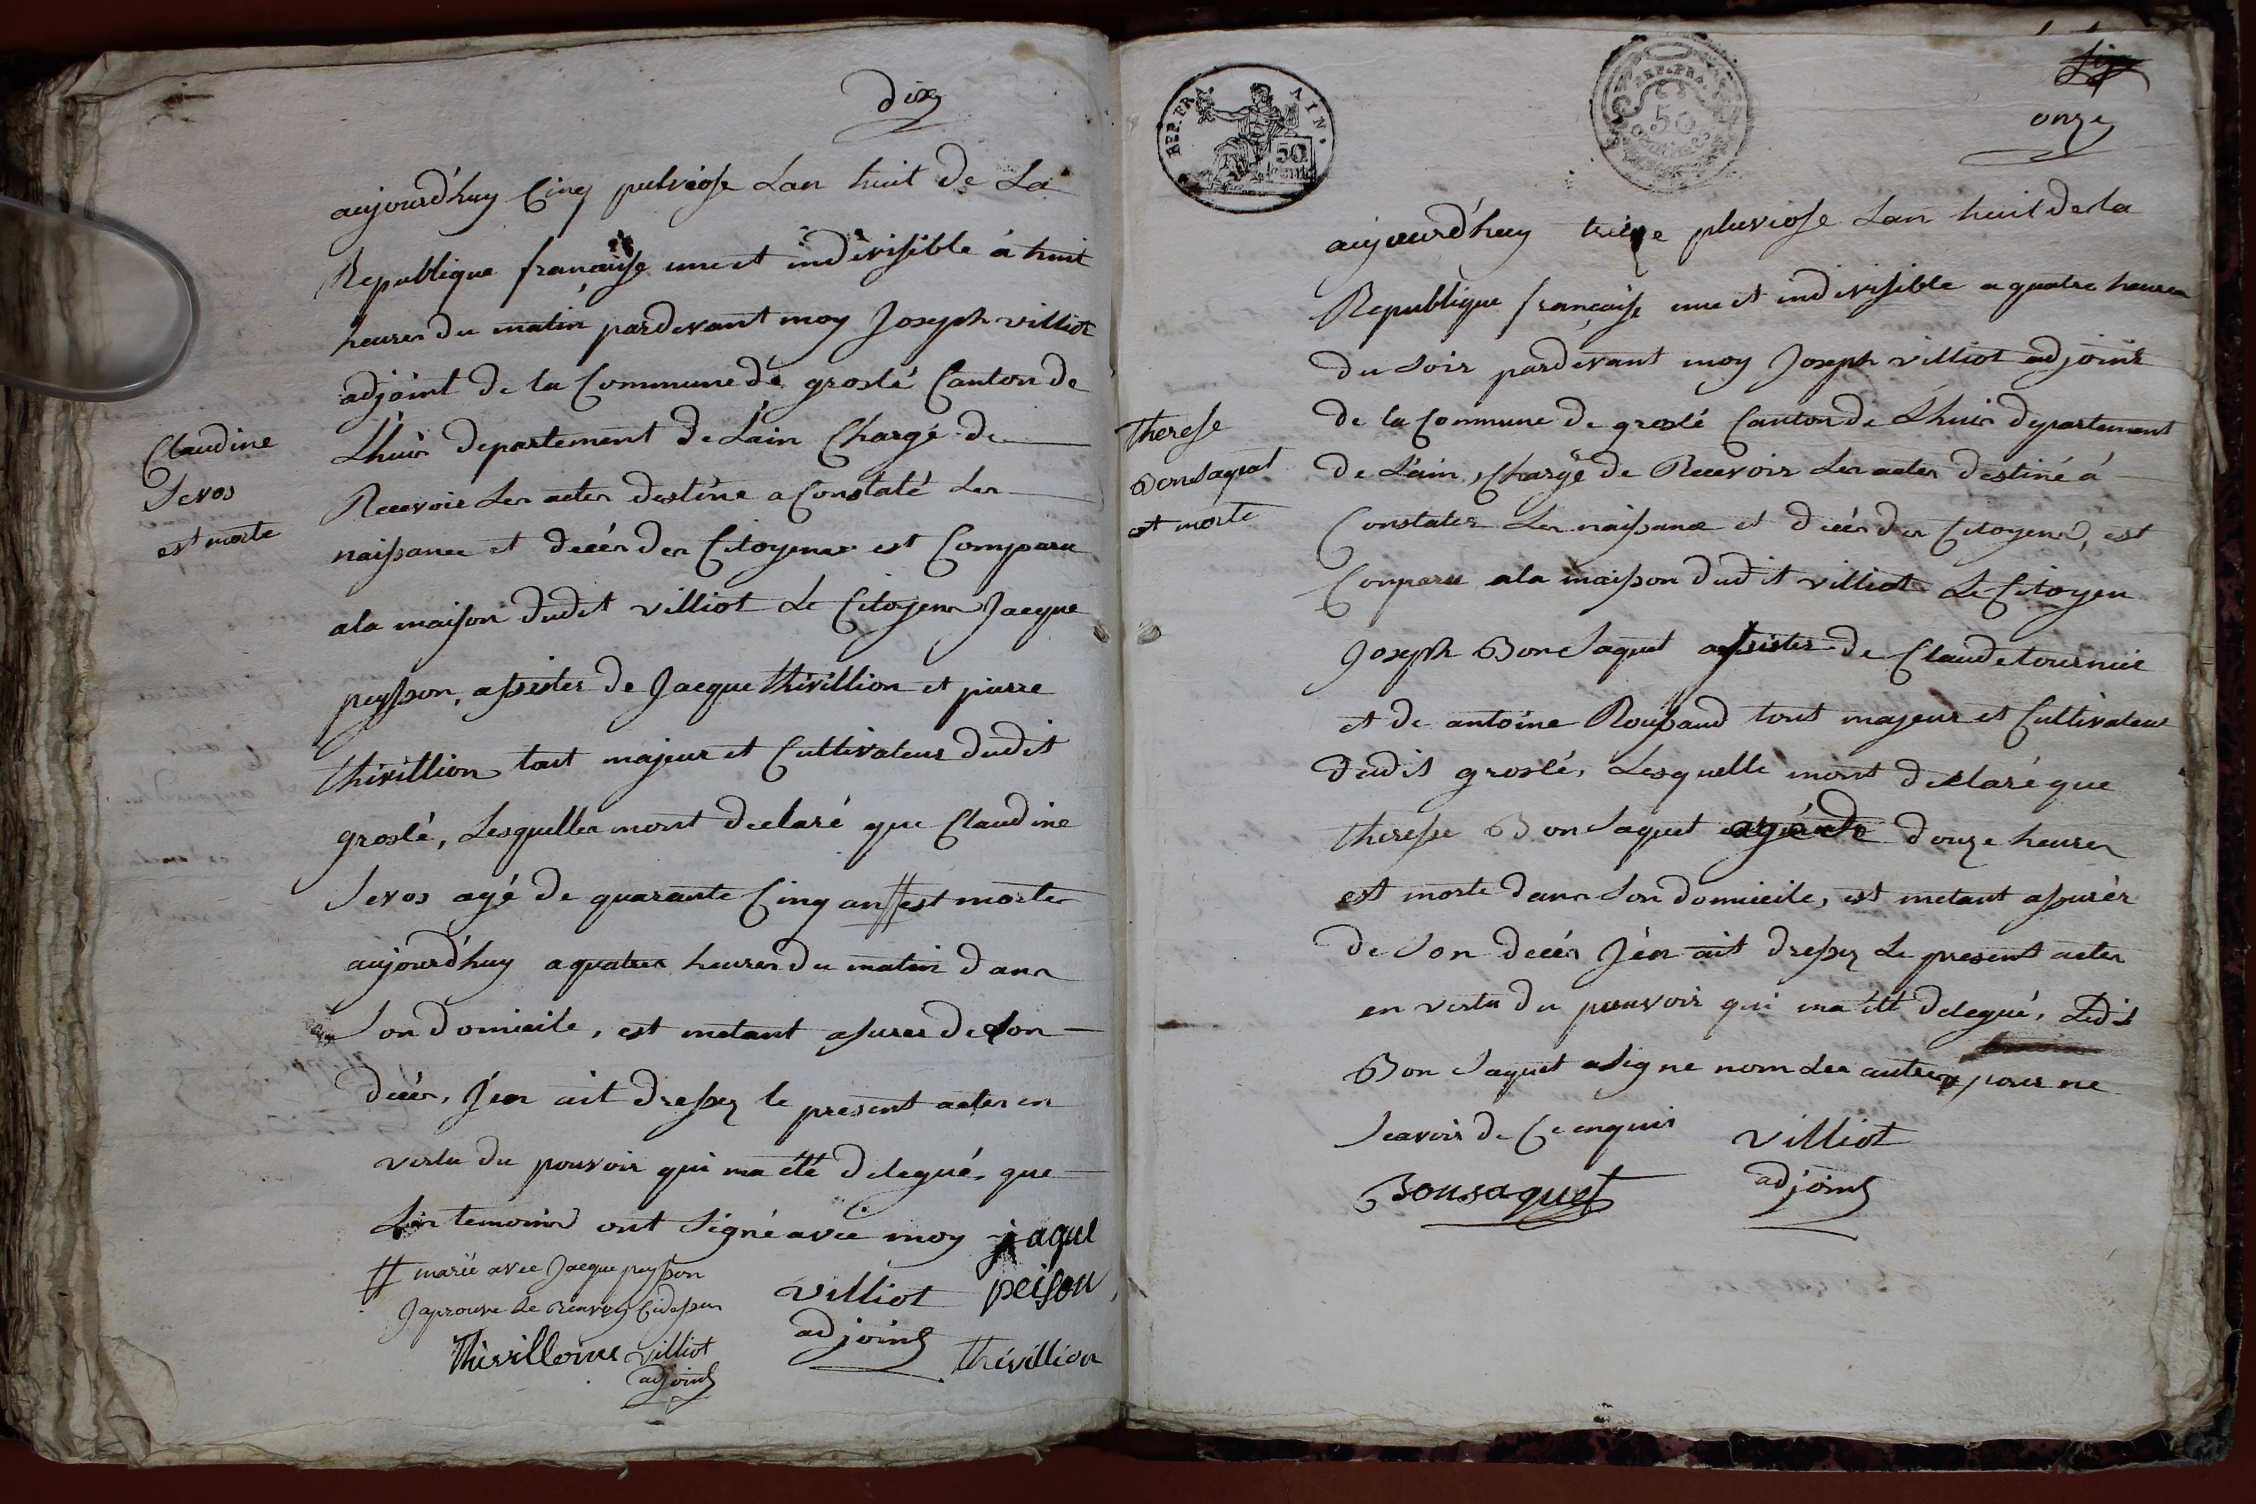 dix
aujourd'huy Cinq pulviose Lan huit de La
Republique francaise une et indivisible á huit
heures du matin pardevant moy Joseph villiot
adjoint de la Commune de groslé Canton de
Lhuis departement de Lain Chargé de
Recevoir Les actes destine a Constaté Les
naissance et decés des Citoyens est Comparu
a la maison dudit villiot Le Citoyens Jacque
peysson, assister de Jacque thivillion et pierre
thivillion tout majeur et Cultivateur dudit
groslé, Lesquelles mont declaré que Claudine
Sevos agé de quarante Cinq an # est morte
aujourd'huy a quatres heures du matin dans
Son domicile, est metant asurer de Son
decés, J'en ait dressez le present actes en
vertu du pouvoir qui ma été delegué, que
Les temoins ont Signé avec moy jaque
peison
villiot
adjoint
thivillion
# marié avec Jacque peysson
Japrouve le renvoy Cidessu
Thivilloins villiot
adjoint
Claudine
Sevos
est morte
REP. FRA. 50
REP. FRA. 50
onze
aujourd'huy treize pluviose Lan huit de la
Republique francaise une et indivisible a quatre heures
du Soir pardevant moy Joseph villiot adjoint
de la Commune de groslé Canton de Lhuis departement
de Lain, Chargé de Recevoir Les actes destiné á
Constater Les naissance et decés des Citoyens, est
Comparu a la maison dudit villiot Le Citoyen
Joseph Bonsaquet assister de Claude tournier
et de antoine Roupaud tout majeur et Cultivateur
dudit groslé, Lesquelle mont declaré que
therese Bonsaquet agée de douze heures
est morte dans Son domicile, est metant assurér
de Son decés J'en ait dressez Le present actes
en vertu du pouvoir qui ma été delegué, Ledit
Bonsaquet a Signe nom Les autres pour ne
Scavoir de Ce enquis
villiot
adjoint
Bonsaquet
therese
Bonsaquet
est morte